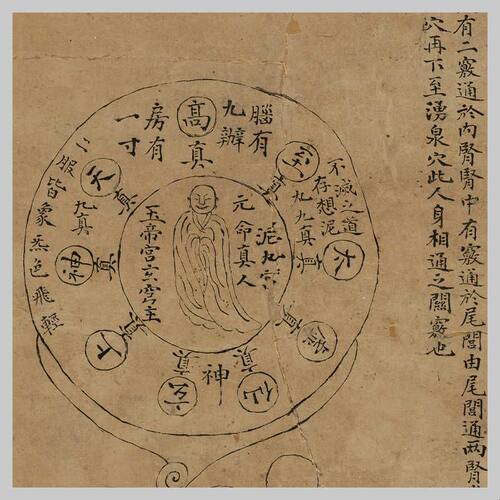 有二竅通於內腎腎中有竅通於尾閭由尾閭通兩腎
穴再下至湧泉穴此人身相通之關竅也
腦有
九瓣
房有
一寸
高真
不滅之道
存想泥
九九真
真
太真
真
仙真
神
玄真
上真
神真
天真
九真
二服皆象炁色飛輕
泥九宮
元命真人
玉帝宮玄穹主